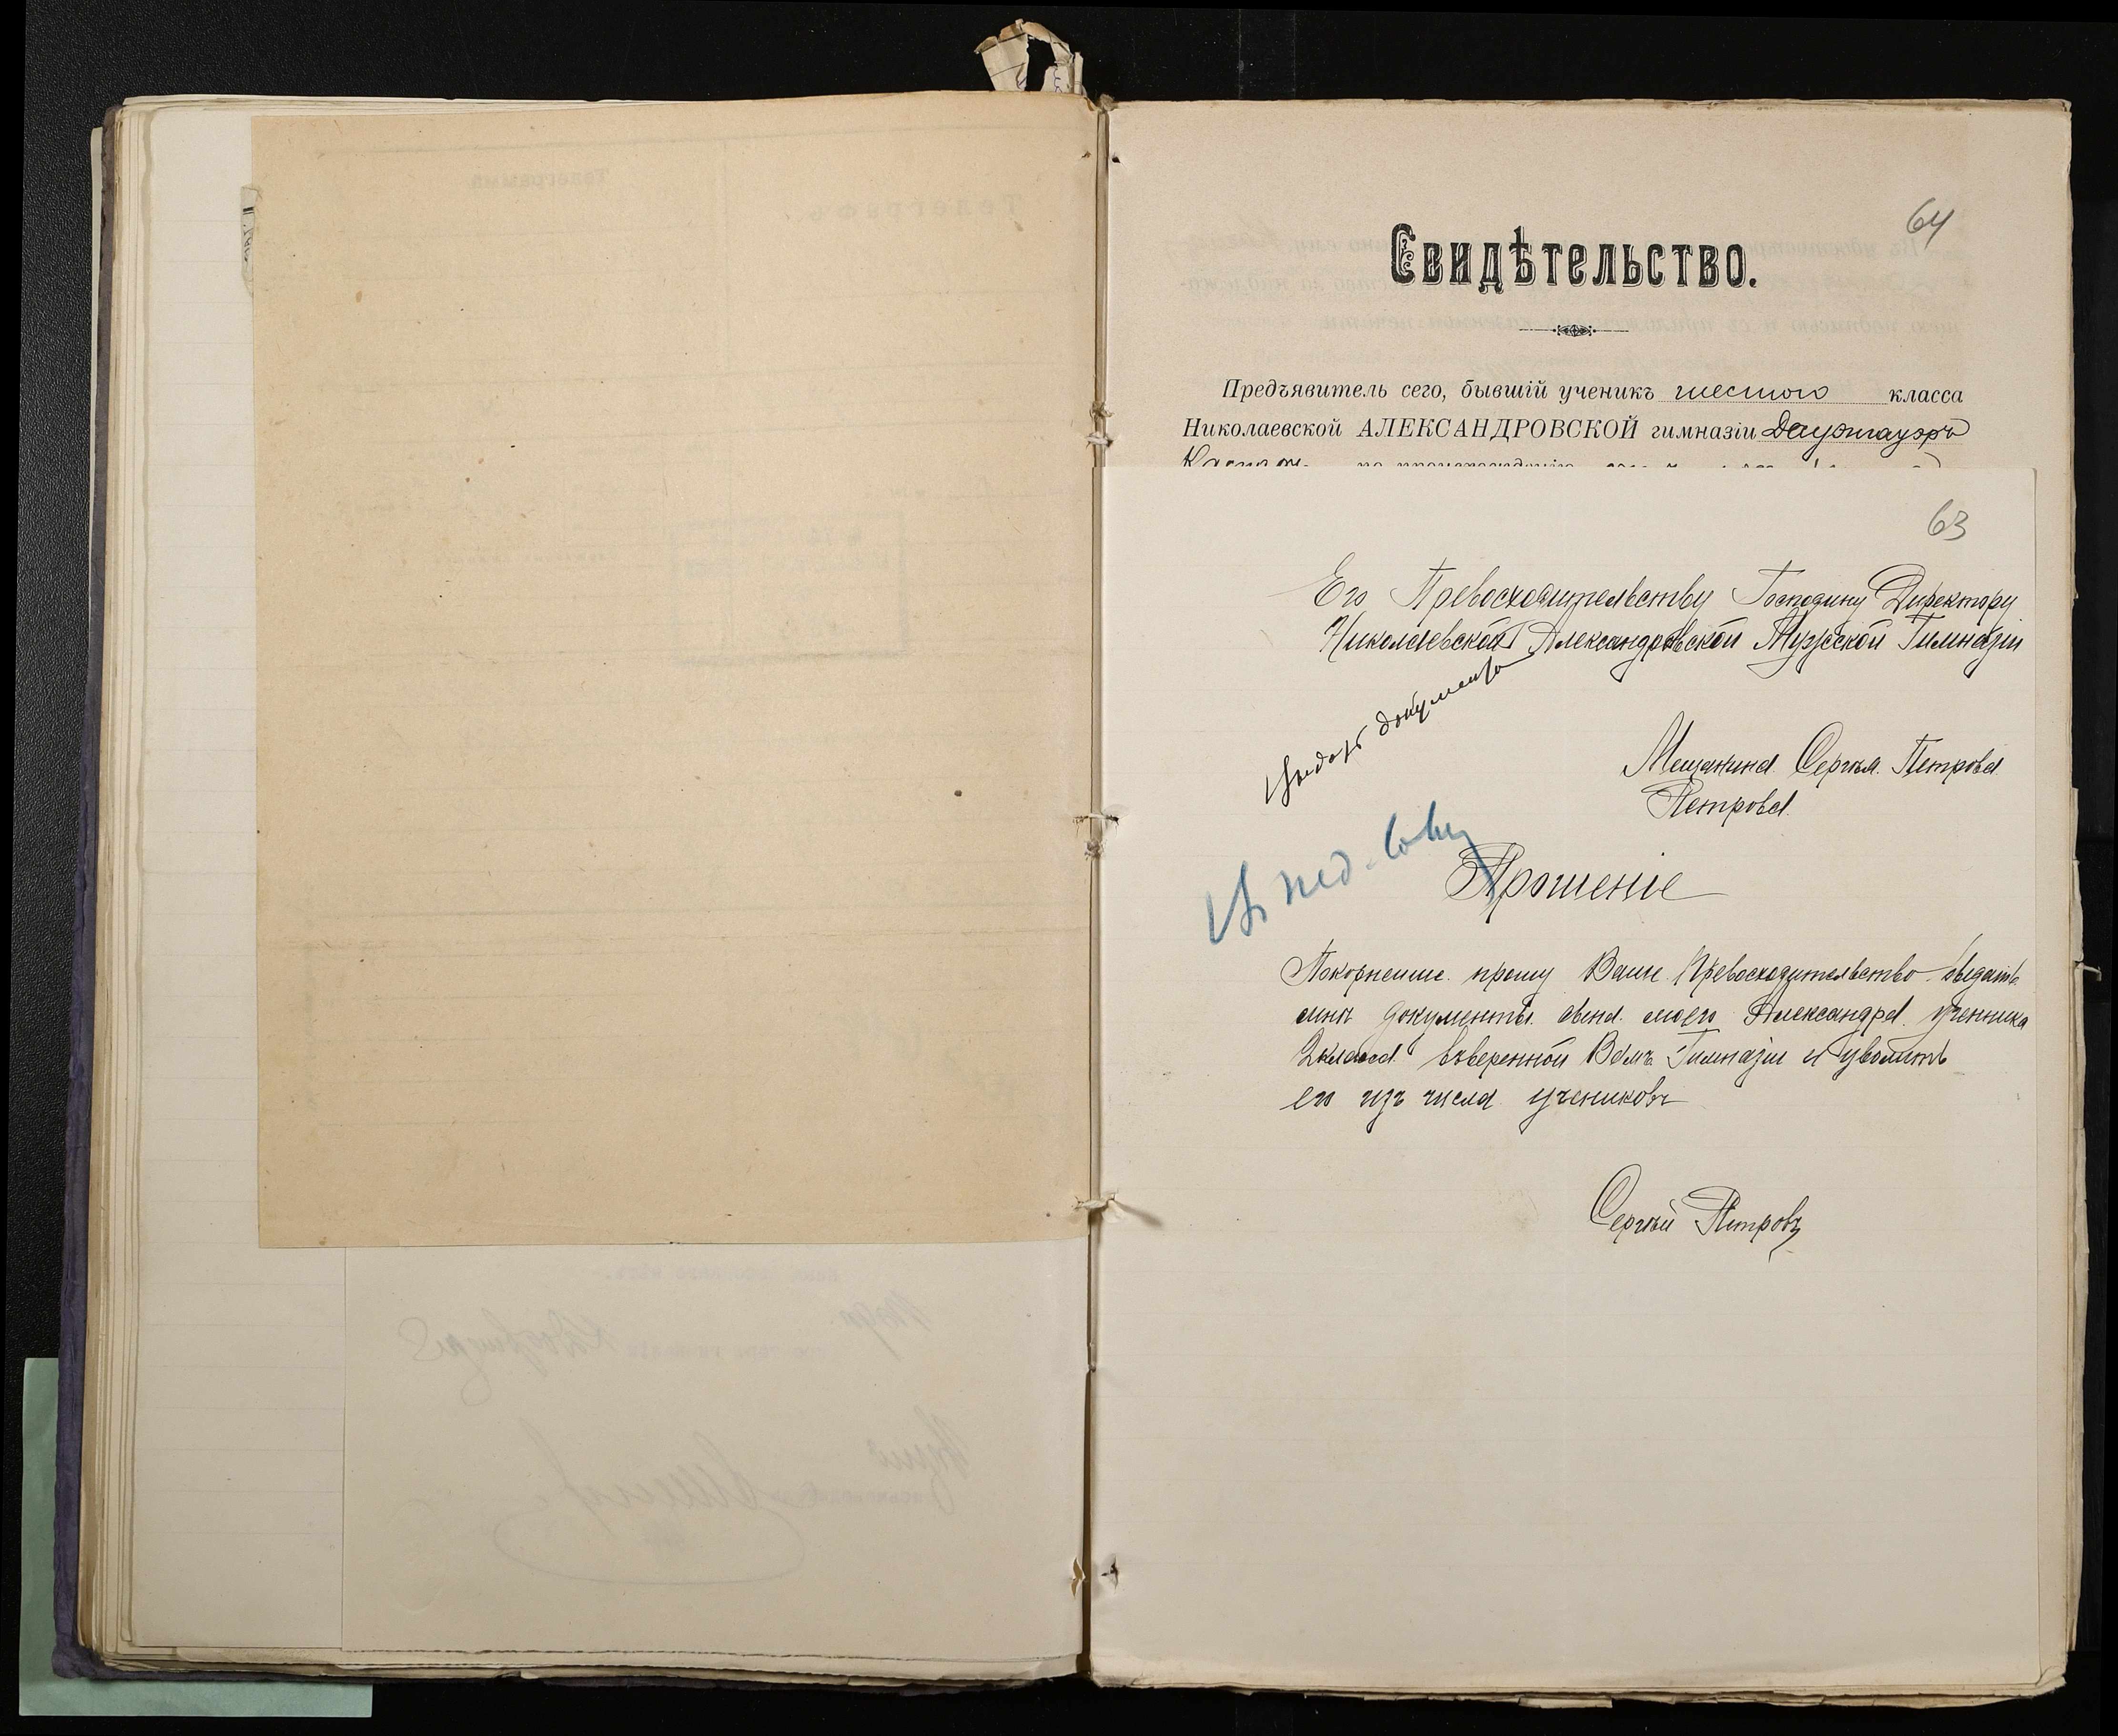 64
Свидѣтельство.
Предъявитель сего, бывшій ученикъ шестого класса
Николаевской АЛЕКСАНДРОВСКОЙ гимназіи
63
Его Превосходительству Господину Директору
Николаевской Александровской Мужской Гимназіи
Выдать документы
Мещанина Сергѣя Петрова
Петрова
В пед. совѣ
Прошеніе
Покорнейше прошу Ваше Превосходительство выдать
мнѣ документы сына моего Александра ученика
2 класса вверенной Вамъ Гимназіи и уволить
его изъ числа учениковъ
Сергѣй Петровъ